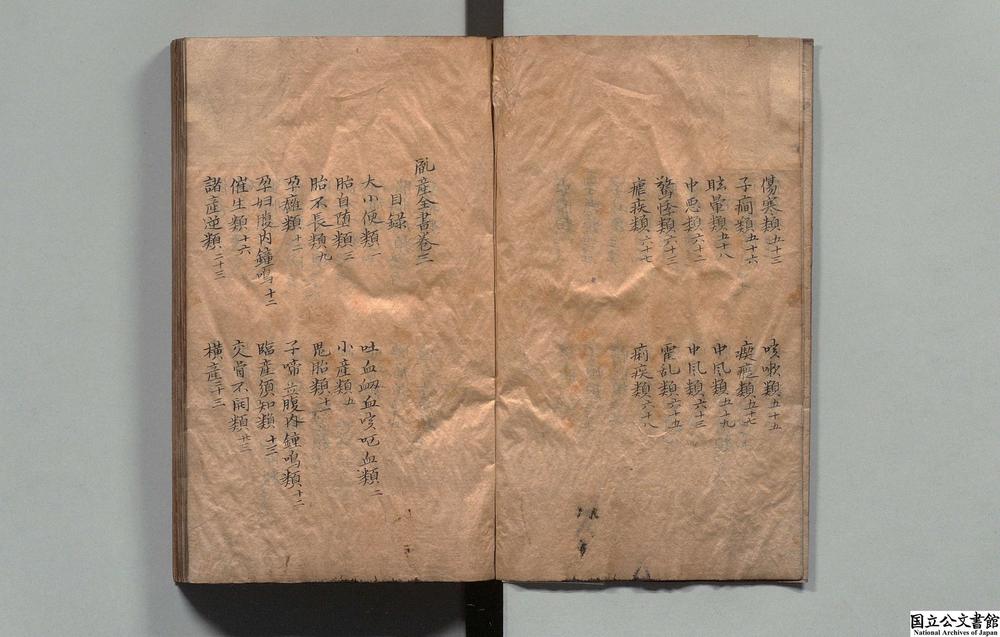 傷寒類五十三
咳嗽類五十五
子癇類五十六
瘈瘲類五十七
眩暈類五十八
中風類五十九
中悪類六十二
中風類六十三
驚悸類六十三
霍乱類六十五
瘧疾類六十七
痢疾類六十八
胤産全書巻三
目録
大小便類一
吐血衂血咳咯血類二
胎自堕類三
小産類五
胎不長類九
鬼胎類十一
孕癰類十二
子啼及腹内鐘鳴類十二
孕婦腹内鐘鳴十二
臨産須知類十三
催生類十六
交骨不開類廿三
諸産逆類二十三
横産三十三
国立公文書館
National Archives of Japan